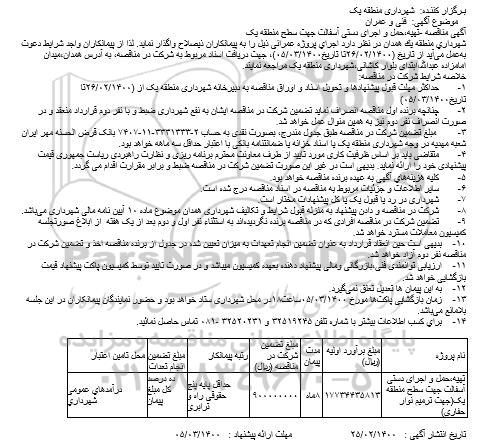 برگزار کننده: شهرداری منطقه یک
موضوع آگهی: فنی و عمران
آگهی مناقصه -تهیه،حمل و اجرای دستی آسفالت جهت سطح منطقه یک
شهرداری منطقه یك همدان در نظر دارد اجرای پروژه عمرانی ذیل را به پیمانکاران ذیصلاح واگذار نماید. لذا از پیمانکاران واجد شرایط دعوت
بعمل می‌آید از تاریخ (۲۶/۰۲/۱۴۰۰تا تاریخ۰۵/۰۳/۱۴۰۰)، جهت دریافت اسناد مربوط به شرکت در مناقصه، به آدرس همدان،میدان
امامزاده عبدالله،ابتدای بلوار کاشانی،شهرداری منطقه یک مراجعه نمایند.
خلاصه شرایط شرکت در مناقصه:
۱- حداکثر مهلت قبول پیشنهادها و تحویل اسناد و اوراق مناقصه به دبیرخانه شهرداری منطقه یک از (۲۶/۰۲/۱۴۰۰تا
تاریخ۰۵/۰۳/۱۴۰۰)
۲- چنانچه برنده اول مناقصه انصراف نماید تضمین شرکت در مناقصه ایشان به نفع شهرداری ضبط و با نفر دوم قرارداد منعقد و در
صورت انصراف نفر دوم نیز به همین منوال عمل خواهد شد.
۳- مبلغ تضمین شرکت در مناقصه طبق جدول مندرج، بصورت نقدی به حساب ۲-۳۳۳۱۳۳۳-۱۱-۷۴۰۷ بانک قرض الحسنه مهر ایران
شعبه مهدیه در وجه شهرداری منطقه یک یا اسناد خزانه یا ضمانتنامه بانکی با اعتبار حداقل سه ماهه خواهد بود.
۴- متقاضی باید بر اساس ظرفیت کاری مورد تایید از طرف معاونت محترم برنامه ریزی و نظارت راهبردی ریاست جمهوری قیمت
پیشنهادی خود را ارائه نماید. بدیهی است در غیر این صورت تضمین شرکت در مناقصه ضبط و برابر مقررات اقدام می گردد.
۵- کلیه هزینه‌های آگهی به عهده برنده مناقصه خواهد بود.
۶- سایر اطلاعات و جزئیات مربوط به مناقصه در اسناد مناقصه درج شده است.
۷- شهرداری در رد یا قبول یک یا کل پیشنهادات مختار است.
۸- شرکت در مناقصه و دادن پیشنهاد به منزله قبول شرایط و تکالیف شهرداری همدان موضوع ماده ۱۰ آیین نامه مالی شهرداری می‌باشد.
۹- تضمین شرکت در مناقصه افرادی که در مناقصه برنده نگردیده‌اند به استثناء نفر اول و دوم بعد از یک هفته از ابلاغ صورتجلسه
کمیسیون معاملات مسترد خواهد شد.
۱۰- بدیهی است حین انعقاد قرارداد به عنوان تضمین انجام تعهدات به میزان تعیین شده در جدول از برنده مناقصه اخذ و تضمین شرکت در
مناقصه نفر دوم آزاد خواهد شد.
۱۱- ارزیابی توانمندی فنی،بازرگانی ومالی پیشنهاد دهنده بعهده کمیسیون میباشد و در صورت تایید توسط کمیسیون پاکت پیشنهاد قیمت
بازگشایی خواهد شد.
۱۲- به این پیمان ها تعدیل تعلق نمی‌گیرد.
۱۳- زمان بازگشایی پاکت‌ها مورخ ۰۵/۰۳/۱۴۰۰ساعت۱۸در محل شهرداری ستاد خواهد بود و حضور نمایندگان پیمانکاران در این جلسه
بلامانع می‌باشد.
۱۴- برای کسب اطلاعات بیشتر با شماره تلفن ۳۲۵۱۹۲۴۵ و ۳۲۵۲۰۲۳۱ -۰۸۱ تماس حاصل نمائید.
نام پروژه | مبلغ برآورد اولیه (ریال) | مدت پیمان | مبلغ تضمین شرکت در مناقصه (ریال) | رتبه پیمانکار | مبلغ تضمین انجام تعدات | محل تامین اعتبار
تهیه،حمل و اجرای دستی آسفالت جهت سطح منطقه یک(جهت ترمیم نوار حفاری) | ۱۷۷۳۴۴۳۵۸۱۳ | ۸ماه | ۹۰۰۰۰۰۰۰۰ | حداقل پایه پنج حقوقی راه و ترابری | ده درصد کل مبلغ پیمان | درآمدهای عمومی شهرداری
تاریخ انتشار آگهی : ۲۵/۰۲/۱۴۰۰ مهلت ارائه پیشنهاد : ۰۵/۰۳/۱۴۰۰